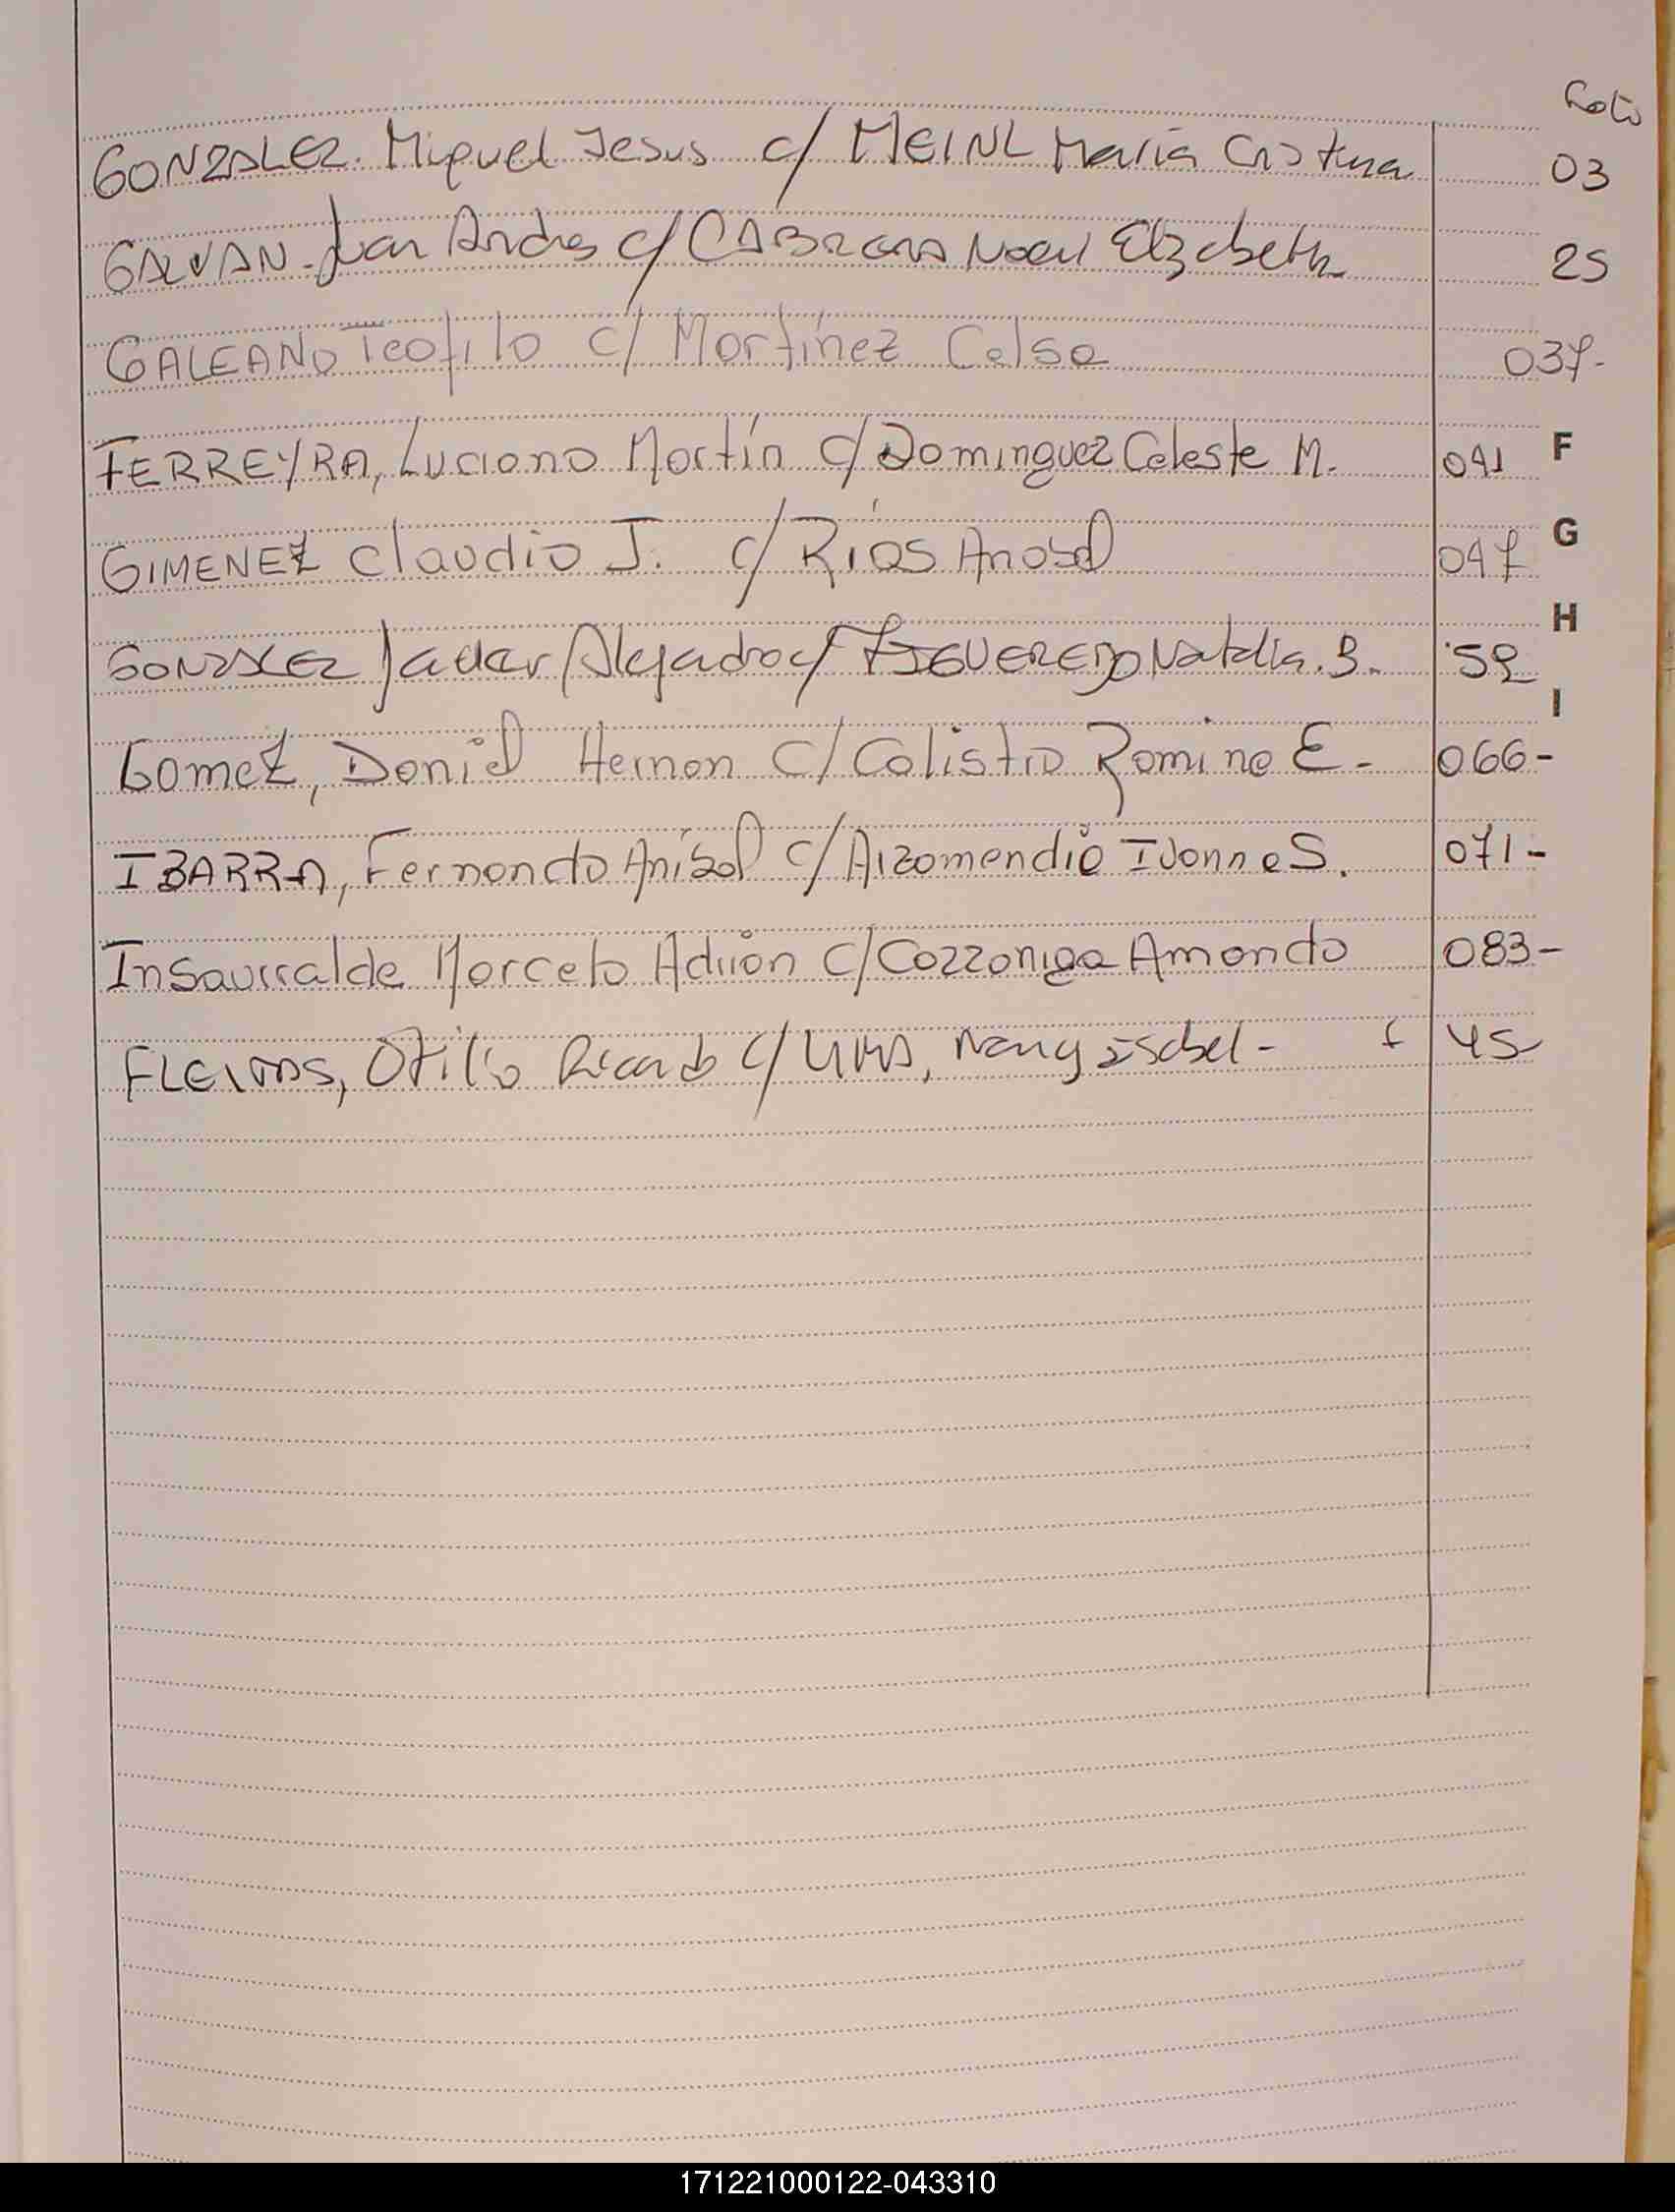 Folio
GONZALEZ. Miguel Jesus c/ MEINL María Cristina 03
GALVAN - Juan Andres c/ CABRERA Noeli Elizabeth 25
GALEANO Teofilo c/ Martínez Celsa 037-
FERREYRA, Luciano Martín c/ Dominguez Celeste M. 041 F
GIMENEZ Claudio J. c/ Ríos Anabel 047 G
H
GONZALEZ Javier Alejandro c/ FIGUEREDO Natalia. B. 52
I
Gomez, Daniel Hernan c/ Calistro Romina E- 066-
IBARRA, Fernando Aníbal c/ Arzamendia Ivonne S. 071-
Insaurralde Marcelo Adrián c/ Cozzoniga Amanda 083-
FLEITAS, Otilio Ricardo c/ Nancy Isabel - f 45
171221000122-043310